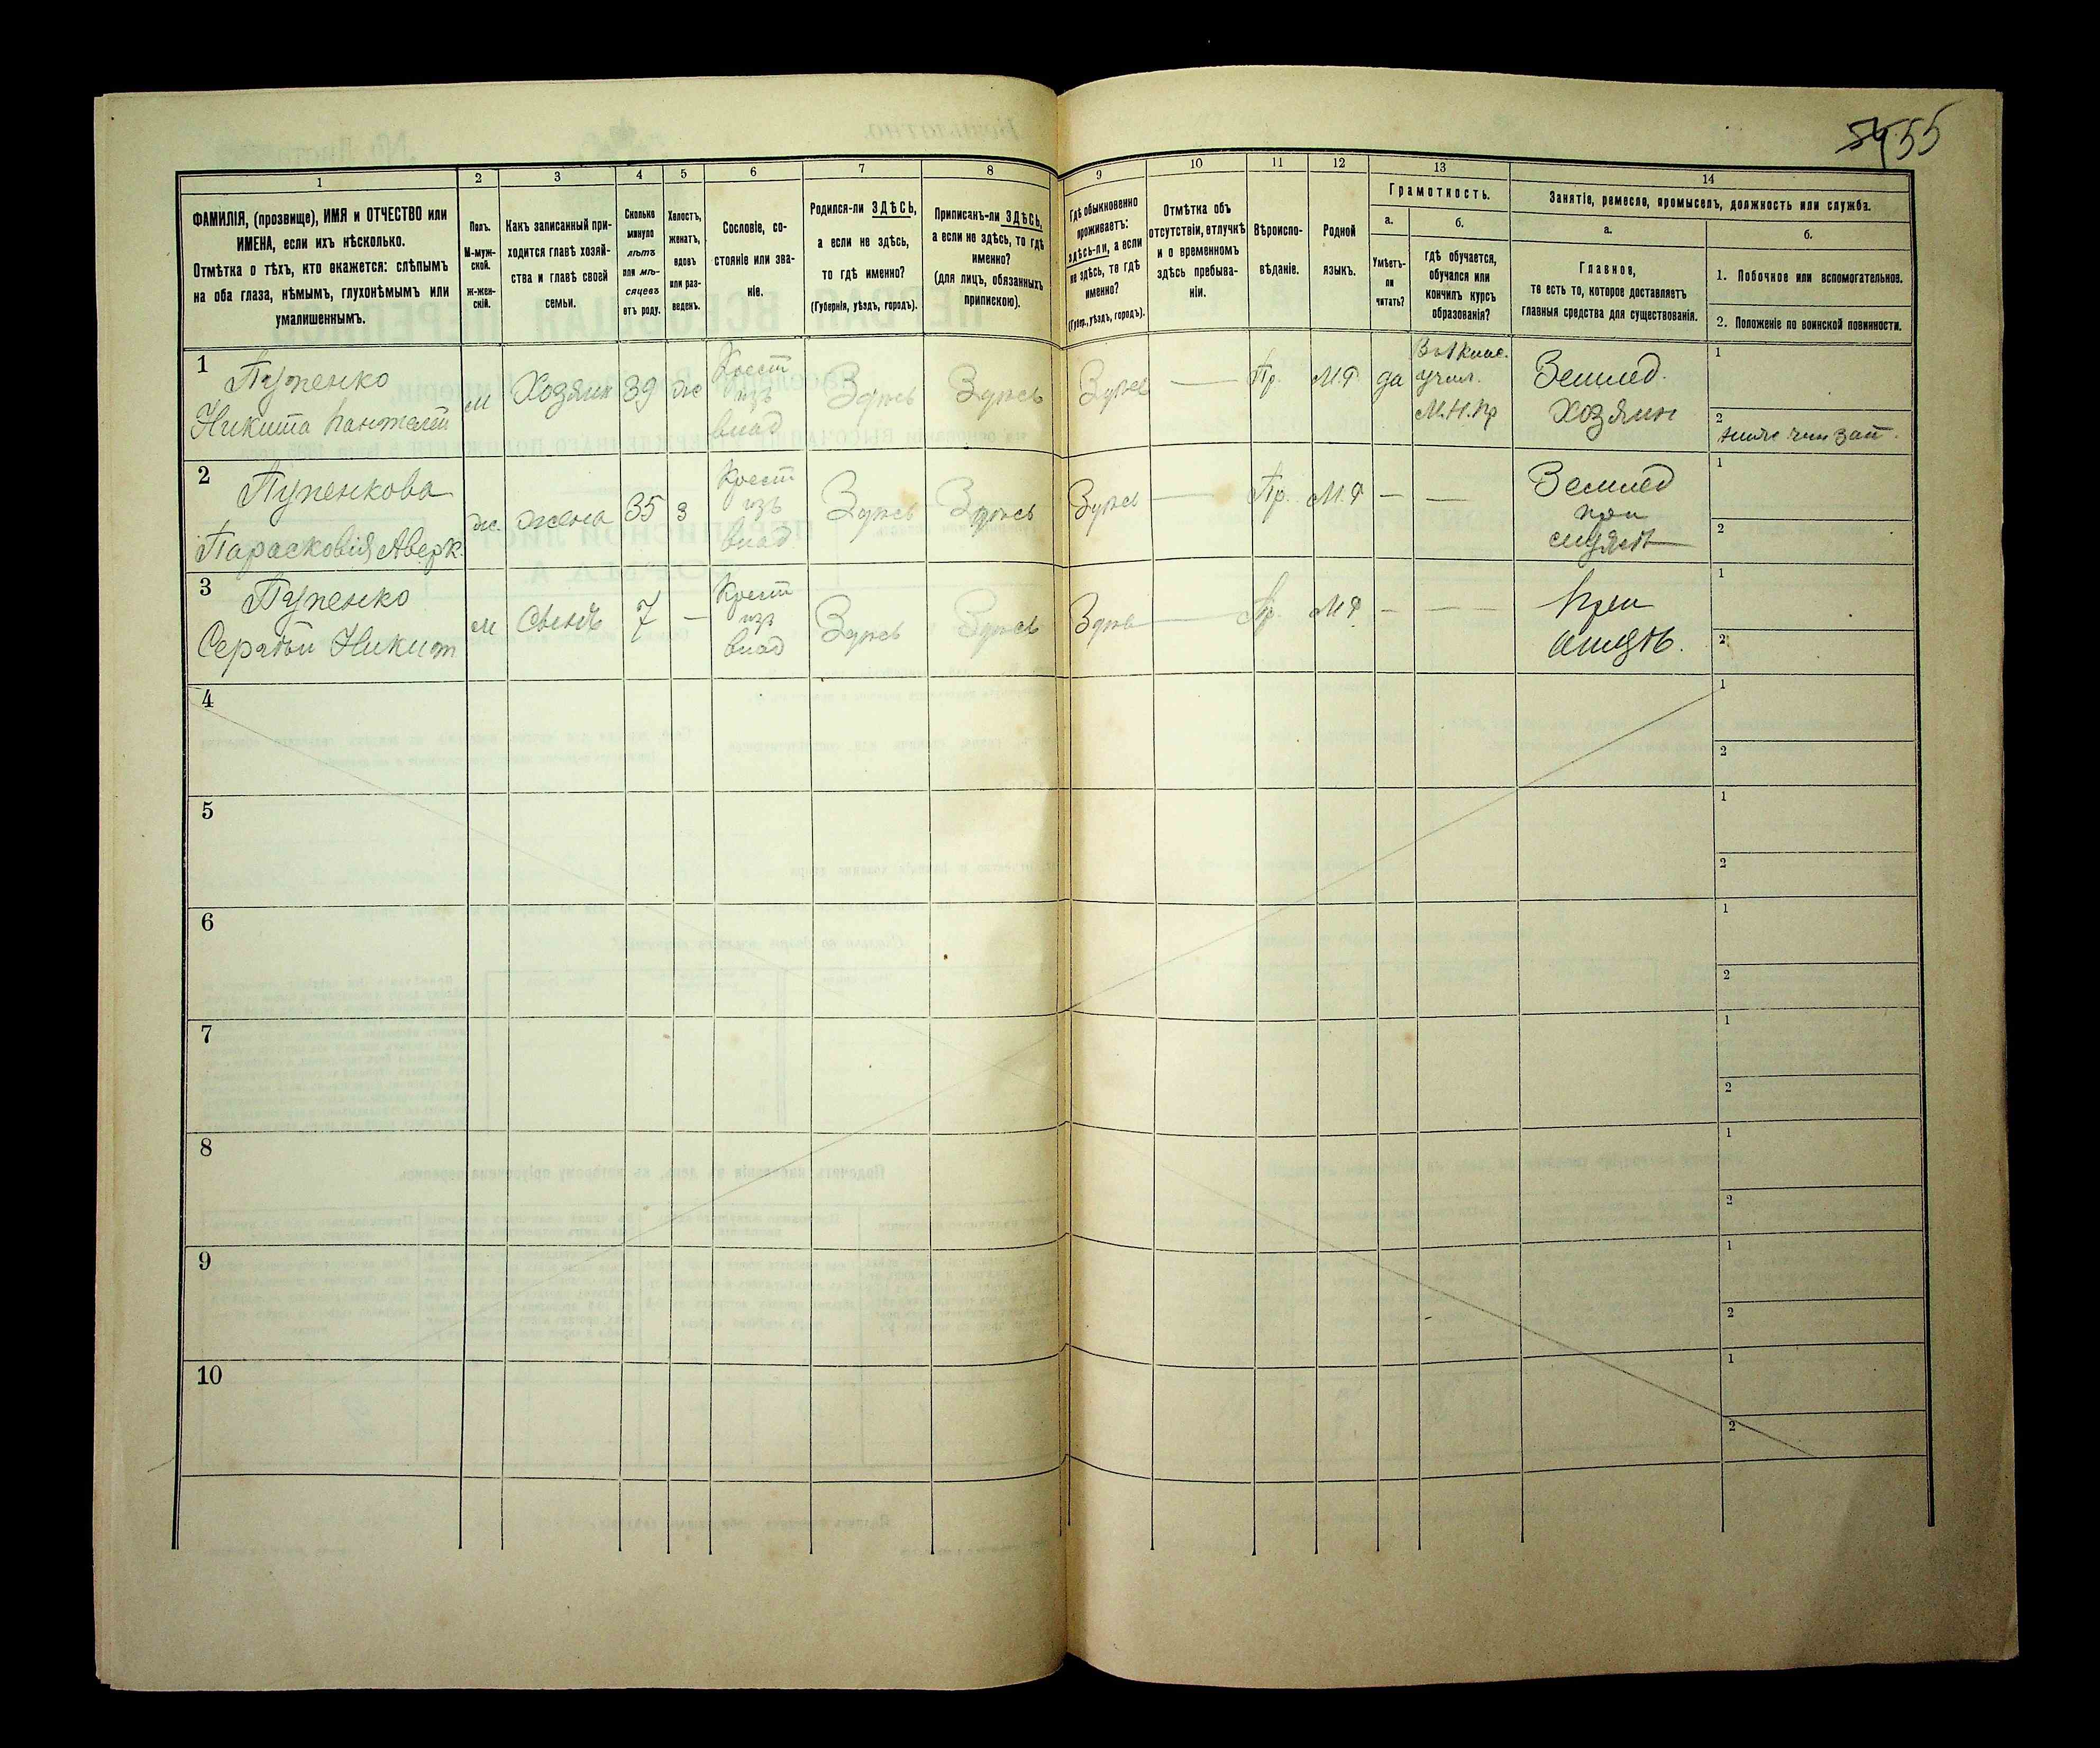 54 55
1
2
3
4
5
6
7
8
9
10
11
12
13
14
ФАМИЛІЯ, (прозвище), ИМЯ и ОТЧЕСТВО или
ИМЕНА, если ихъ нѣсколько.
Отмѣтка о тѣхъ, кто окажется: слѣпымъ
на оба глаза, нѣмымъ, глухонѣмымъ или
умалишеннымъ.
Полъ.
М-муж-
ской.
Ж-жен-
скій.
Какъ записанный при-
ходится главѣ хозяй-
ства и главѣ своей
семьи.
Сколько
минуло
лѣтъ
или мѣ-
сяцевъ
отъ роду.
Холостъ,
женатъ,
вдовъ
или раз-
веденъ.
Сословіе, со-
стояніе или зва-
ніе.
Родился-ли ЗДѢСЬ,
а если не здѣсь,
то гдѣ именно?
(Губернія, уѣздъ, городъ).
Приписанъ-ли ЗДѢСЬ,
а если не здѣсь, то гдѣ
именно?
(для лицъ, обязанныхъ
припискою).
Гдѣ обыкновенно
проживаетъ:
здѣсь-ли, а если
не здѣсь, то гдѣ
именно?
(Губер., уѣздъ, городъ).
Отмѣтка объ
отсутствіи, отлучкѣ
и о временномъ
здѣсь пребыва-
ніи.
Вѣроиспо-
вѣданіе.
Родной
языкъ.
Грамотность.
а.
б.
Умѣетъ-
ли
читать?
гдѣ обучается,
обучался или
кончилъ курсъ
образованія?
Занятіе, ремесло, промыселъ, должность или служба.
а.
б.
Главное,
то есть то, которое доставляетъ
главныя средства для существованія.
1. Побочное или вспомогательное.
2. Положеніе по воинской повинности.
1
Пупенко
Никита
м
Хозяин
39
ж
Крест
изъ
влад
Здѣсь
Здѣсь
Здѣсь
—
Пр.
М.Р.
да
учил.
М.Н.Пр
Землед.
хозяин
1
2
2
Пупенкова
Парасковія Аверк.
ж.
жена
35
з
Крест
изъ
влад
Здѣсь
Здѣсь
Здѣсь
—
Пр.
М.Р
—
—
Землед
при
1
2
3
Пупенко
Никит
м
Сынъ
7
—
Крест
изъ
влад
Здѣсь
Здѣсь
Здѣсь
—
Пр
М.Р
—
—
При
1
2
4
1
2
5
1
2
6
1
2
7
1
2
8
1
2
9
1
2
10
1
2